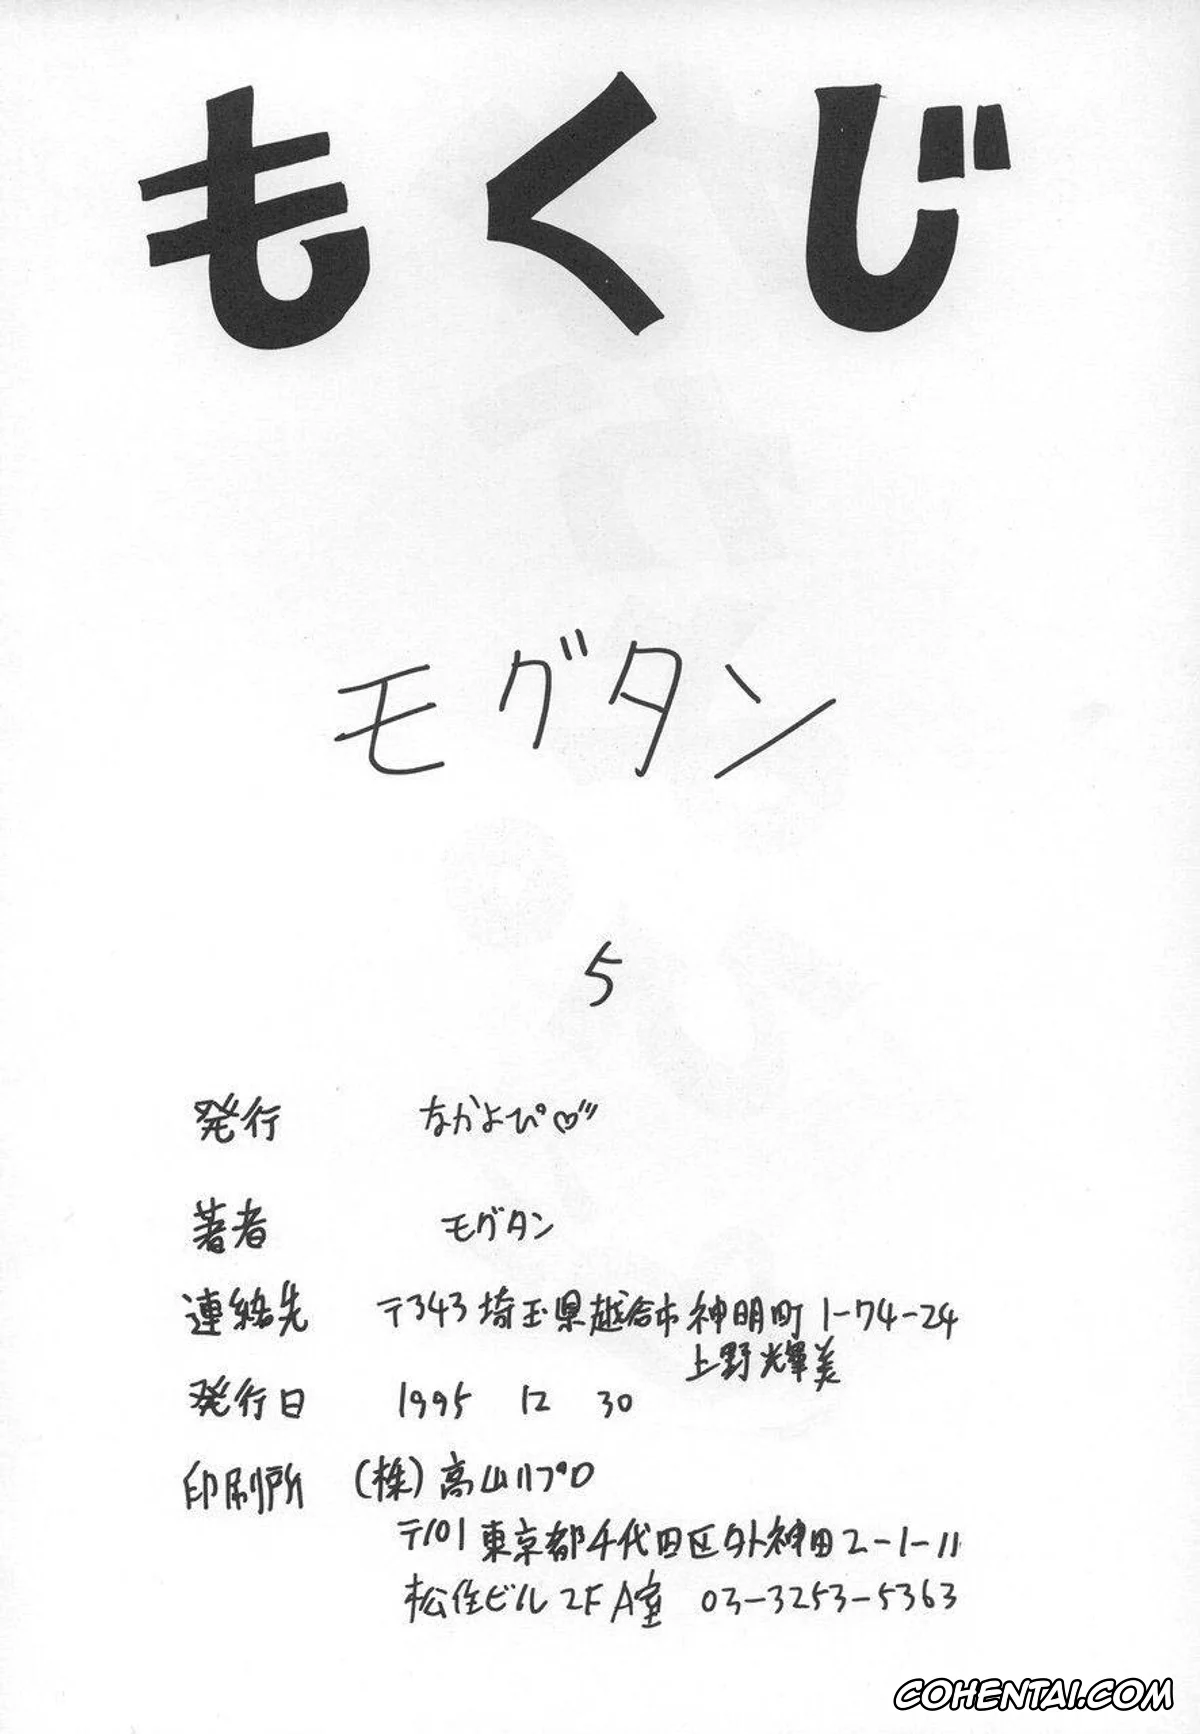 もくじ
モグタン
5
発行 なかよぴ♡
著者 モグタン
連絡先 〒343 埼玉県越谷市神明町 1-74-24
上野輝美
発行日 1995 12 30
印刷所 (株)高山リプロ
〒101 東京都千代田区外神田 2-1-11
松住ビル 2F A室 03-3253-5363
COHENTAI.COM